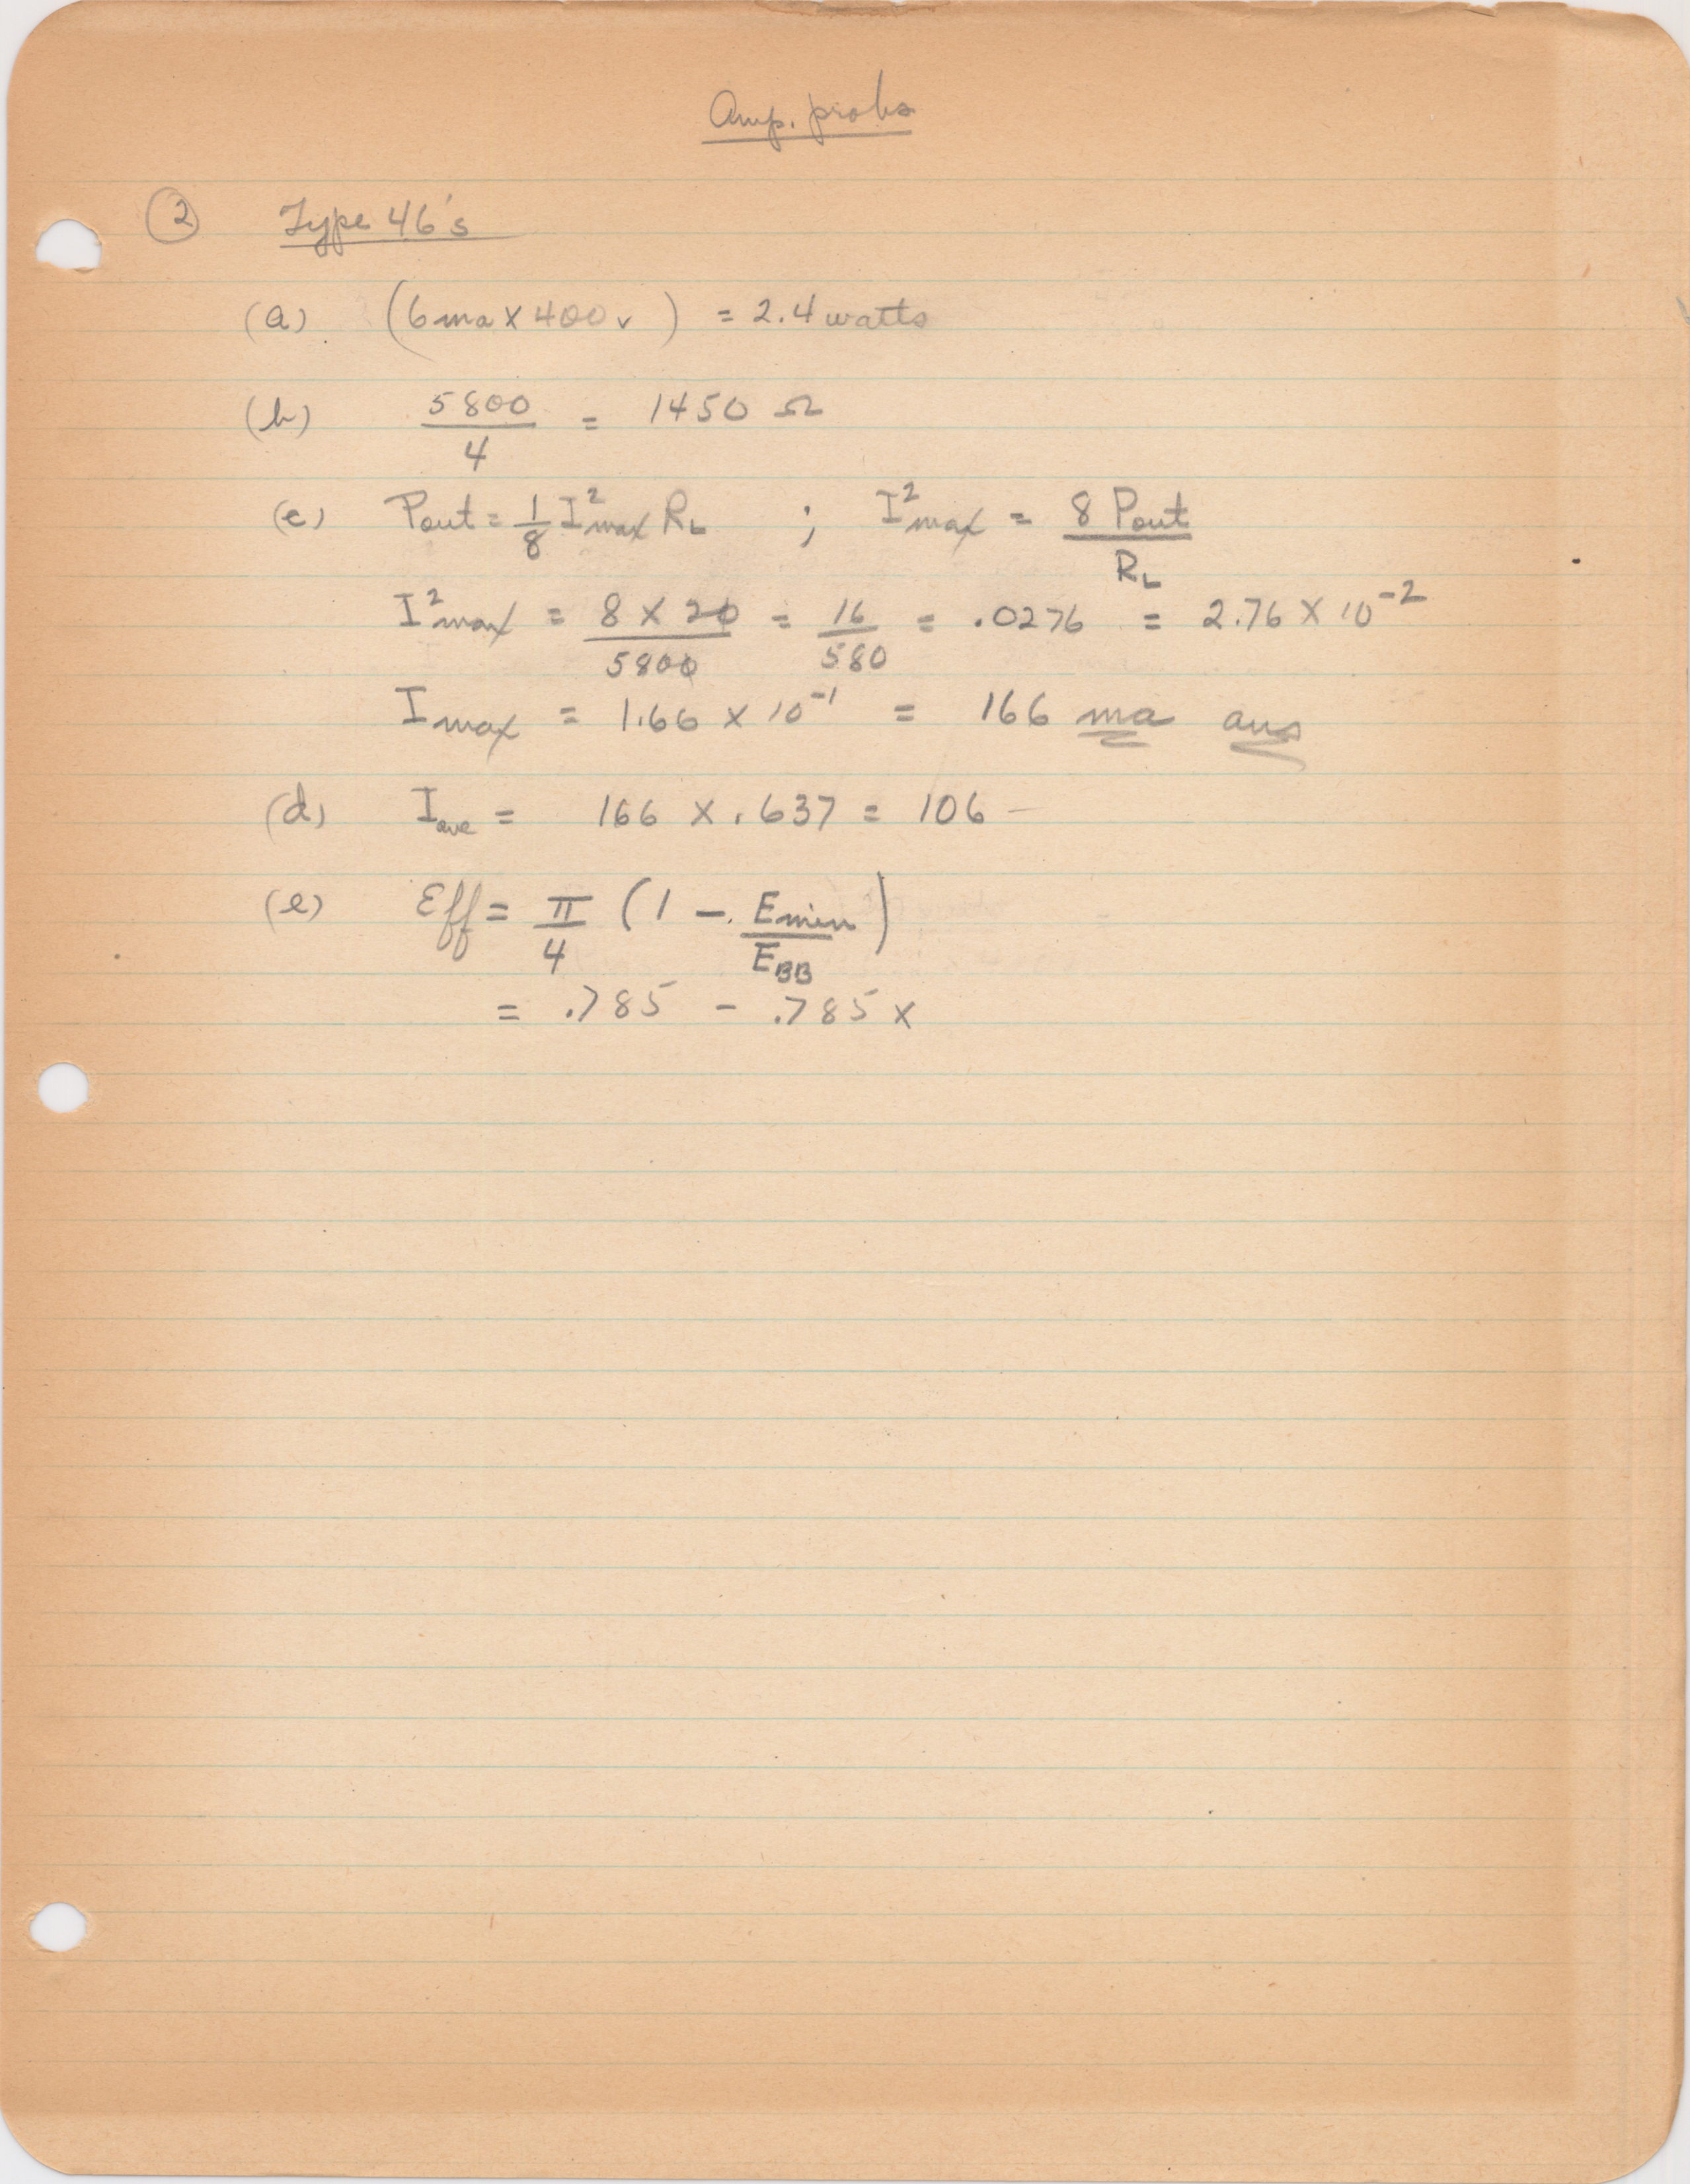 Amp. probs
② Type 46's
(a) (6 ma X 400 v) = 2.4 watts
(b) 5800/4 = 1450 Ω
(c) Pout = 1/8 I²max RL ; I²max = 8 Pout/RL
I²max = 8 X 20/5800 = 16/580 = .0276 = 2.76 X 10⁻²
Imax = 1.66 x 10⁻¹ = 166 ma ans
(d) Iave = 166 X .637 = 106 –
(e) Eff = π/4 (1 – Emin/EBB)
= .785 - .785 x